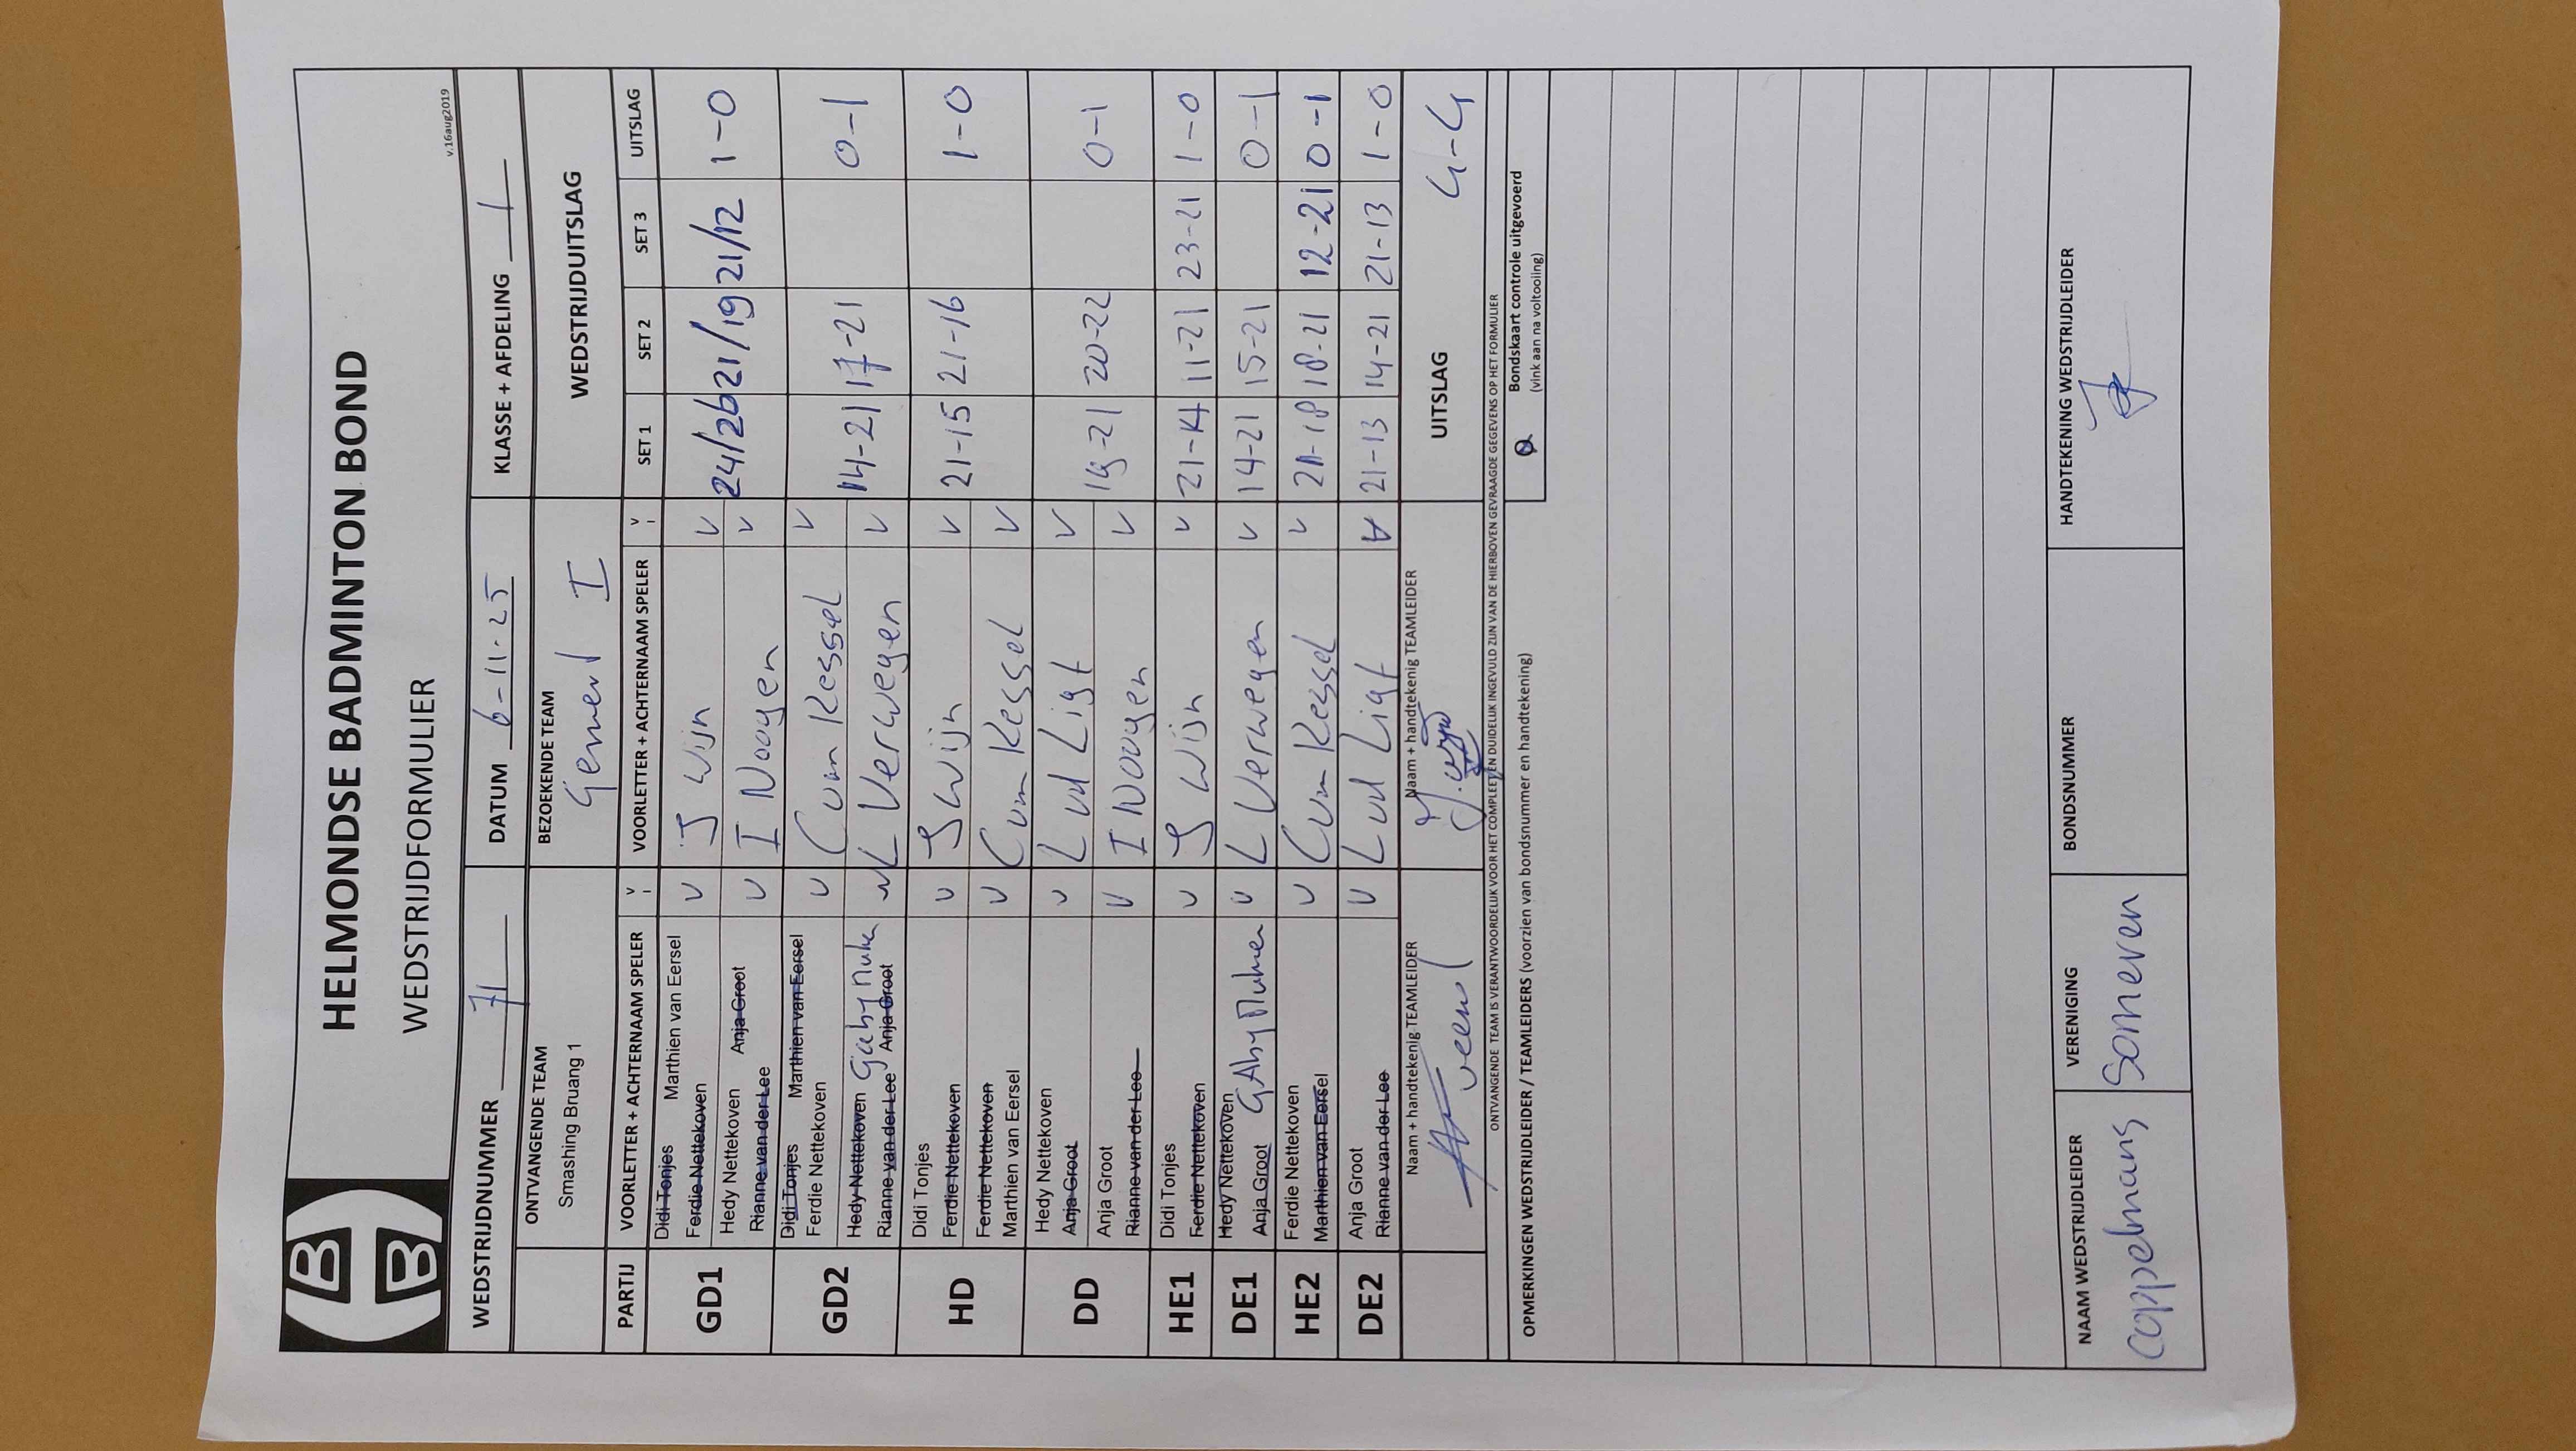 HELMONDSE BADMINTON BOND
WEDSTRIJDFORMULIER
v.16aug2019
WEDSTRIJDNUMMER 71 DATUM 6-11-25 KLASSE + AFDELING 1
ONTVANGENDE TEAM BEZOEKENDE TEAM WEDSTRIJDUITSLAG
Smashing Bruang 1 Gemert I
PARTIJ VOORLETTER + ACHTERNAAM SPELER V VOORLETTER + ACHTERNAAM SPELER V SET 1 SET 2 SET 3 UITSLAG
GD1 Didi Tonjes Marthien van Eersel V J Wijn V 24/26 21/19 21/12 1-0
Ferdie Nettekoven
Hedy Nettekoven Anja Groot V I Nooyen V
Rianne van der Lee
GD2 Didi Tonjes Marthien van Eersel V C van Kessel V 14-21 17-21 0-1
Ferdie Nettekoven
Hedy Nettekoven Gaby V L Verwegen V
Rianne van der Lee Anja Groot
HD Didi Tonjes V J Wijn V 21-15 21-16 1-0
Ferdie Nettekoven
Ferdie Nettekoven V C van Kessel V
Marthien van Eersel
DD Hedy Nettekoven V L vd Ligt V 19-21 20-22 0-1
Anja Groot
Anja Groot V I Nooyen V
Rianne van der Lee
HE1 Didi Tonjes V J Wijn V 21-14 11-21 23-21 1-0
Ferdie Nettekoven
DE1 Hedy Nettekoven GAby V L Verwegen V 14-21 15-21 0-1
Anja Groot
HE2 Ferdie Nettekoven V C van Kessel V 21-18 18-21 12-21 0-1
Marthien van Eersel
DE2 Anja Groot V L vd Ligt V 21-13 14-21 21-13 1-0
Rianne van der Lee
Naam + handtekenig TEAMLEIDER Naam + handtekenig TEAMLEIDER UITSLAG 4-4
J. Wijn
ONTVANGENDE TEAM IS VERANTWOORDELIJK VOOR HET COMPLEET EN DUIDELIJK INGEVULD ZIJN VAN DE HIERBOVEN GEVRAAGDE GEGEVENS OP HET FORMULIER
OPMERKINGEN WEDSTRIJDLEIDER / TEAMLEIDERS (voorzien van bondsnummer en handtekening)
Bondskaart controle uitgevoerd
(vink aan na voltooiing)
NAAM WEDSTRIJDLEIDER VERENIGING BONDSNUMMER HANDTEKENING WEDSTRIJDLEIDER
Coppelmans Someren